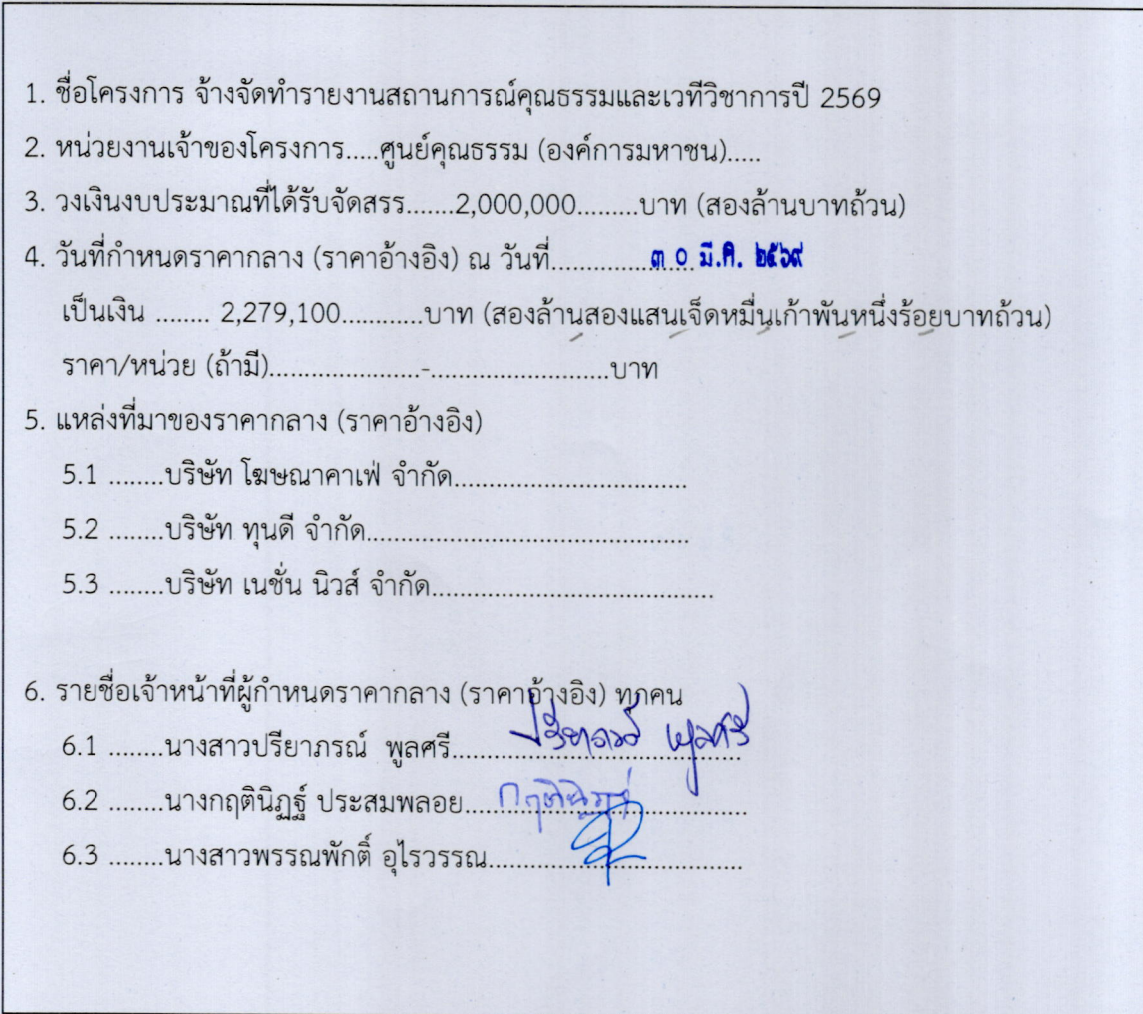 1. ชื่อโครงการ จ้างจัดทำรายงานสถานการณ์คุณธรรมและเวทีวิชาการปี 2569
2. หน่วยงานเจ้าของโครงการ.....ศูนย์คุณธรรม (องค์การมหาชน).....
3. วงเงินงบประมาณที่ได้รับจัดสรร.......2,000,000.........บาท (สองล้านบาทถ้วน)
4. วันที่กำหนดราคากลาง (ราคาอ้างอิง) ณ วันที่.................๓๐ มี.ค. ๒๕๖๙
เป็นเงิน ........ 2,279,100............บาท (สองล้านสองแสนเจ็ดหมื่นเก้าพันหนึ่งร้อยบาทถ้วน)
ราคา/หน่วย (ถ้ามี)......................-...........................บาท
5. แหล่งที่มาของราคากลาง (ราคาอ้างอิง)
5.1 ........บริษัท โฆษณาคาเฟ่ จำกัด..................................
5.2 ........บริษัท ทุนดี จำกัด................................................
5.3 ........บริษัท เนชั่น นิวส์ จำกัด.........................................
6. รายชื่อเจ้าหน้าที่ผู้กำหนดราคากลาง (ราคาอ้างอิง) ทุกคน
6.1 ........นางสาวปรียาภรณ์ พูลศรี.......................................... ปรียาภรณ์ พูลศรี
6.2 ........นางกฤตินิฏฐ์ ประสมพลอย......................................... กฤตินิฏฐ์
6.3 ........นางสาวพรรณพักติ์ อุไรวรรณ.....................................